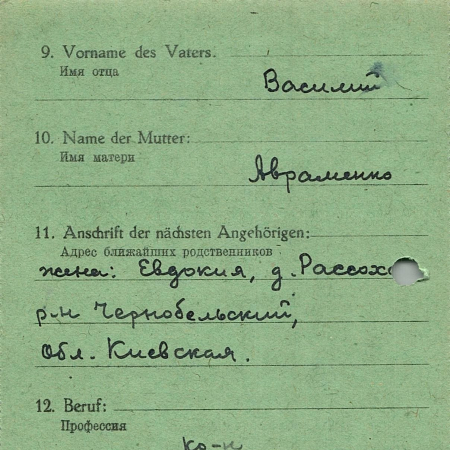 9. Vorname des Vaters.
Имя отца
Василий
10. Name der Mutter:
Имя матери
Авраменко
11. Anschrift der nächsten Angehörigen:
Адрес ближайших родственников
жена: Евдокия, д. Рассох
р-н Чернобельский,
Обл. Киевская.
12. Beruf:
Профессия